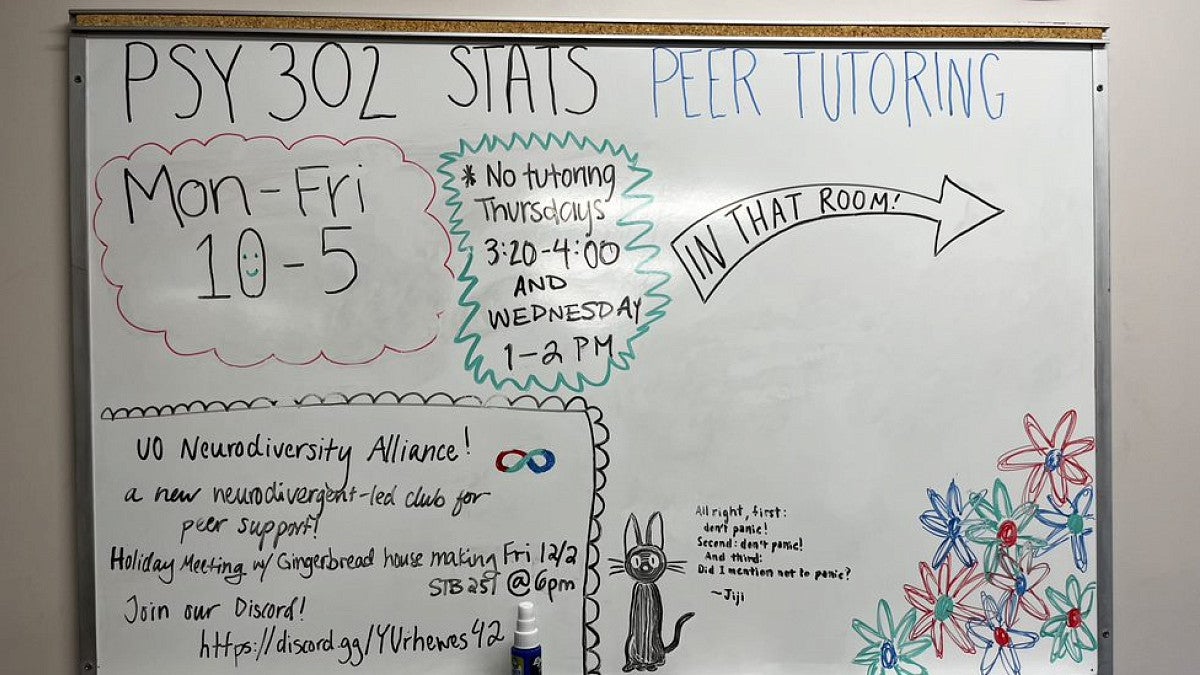 PSY 302 STATS PEER TUTORING
Mon-Fri
10-5
* No tutoring
Thursdays
3:20-4:00
AND
WEDNESDAY
1-2 PM
IN THAT ROOM!
UO Neurodiversity Alliance!
a new neurodivergent-led club for
peer support!
Holiday Meeting w/ Gingerbread house making Fri 12/2
STB 251 @ 6pm
Join our Discord!
https://discord.gg/YUrhewes42
All right, first:
don't panic!
Second: don't panic!
And third:
Did I mention not to panic?
~Jiji